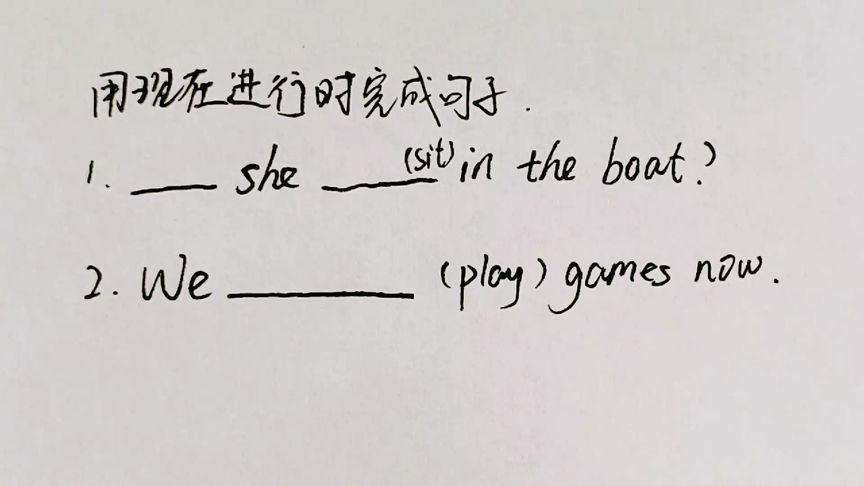 用现在进行时完成句子.
1. ____ she ____ (sit) in the boat?
2. We ________ (play) games now.